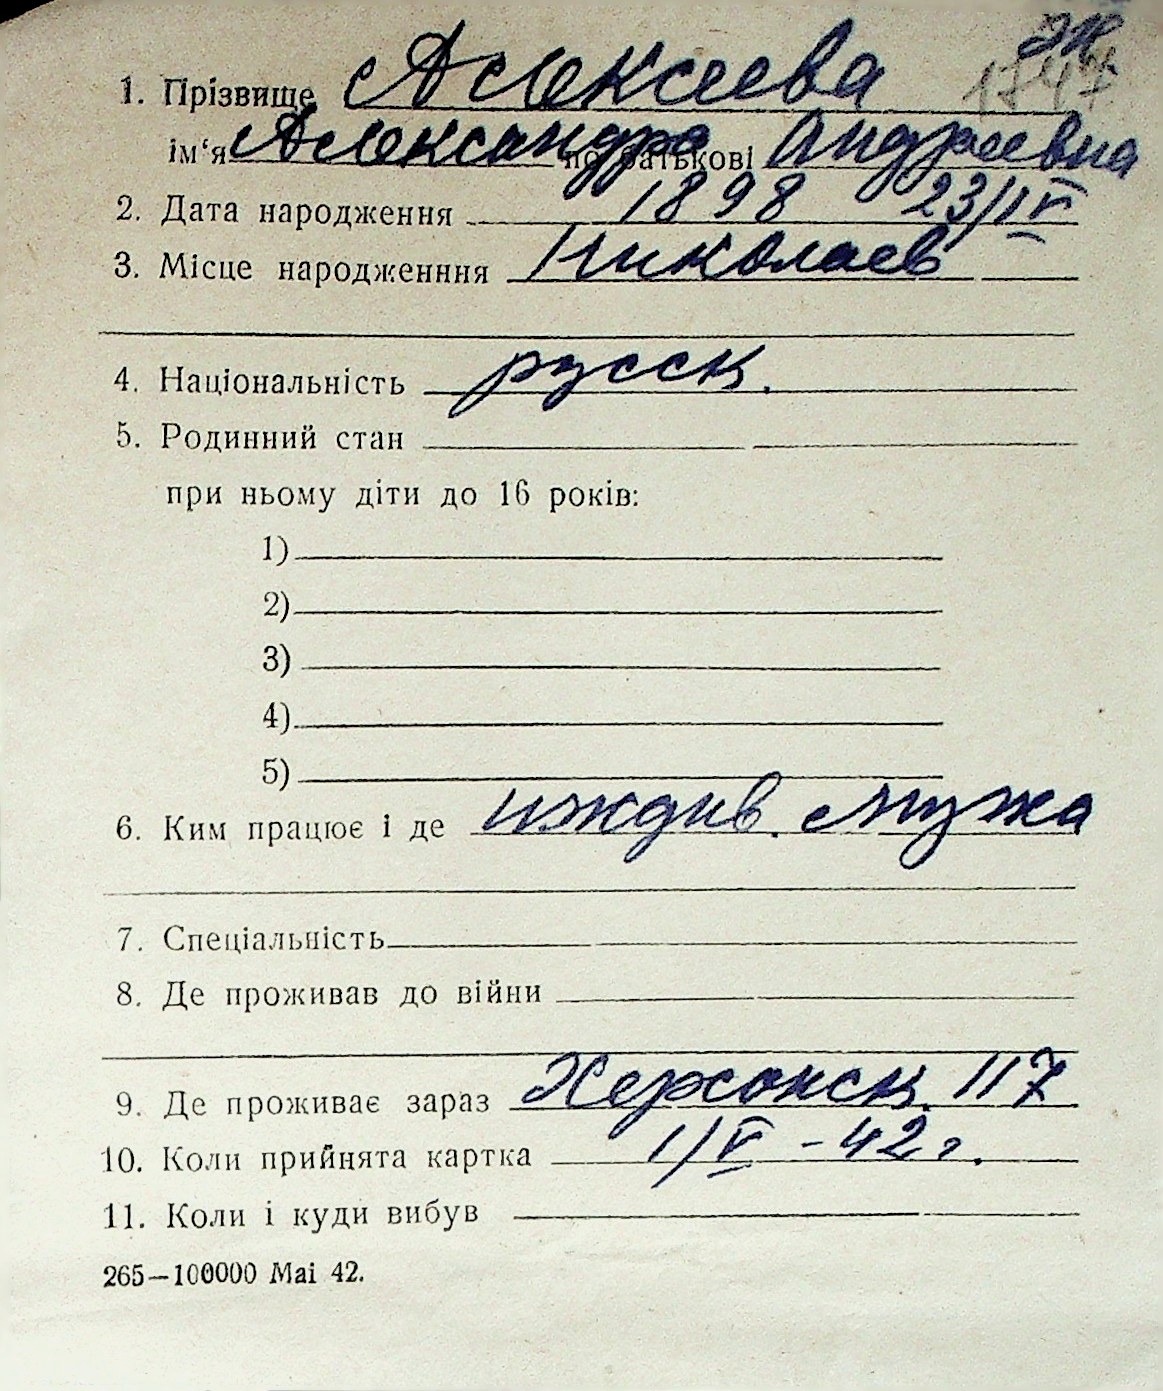 1747
1. Прізвище Алексеева
ім‘я Александра по батькові Андреевна
2. Дата народження 1898 23/IV
3. Місце народженння Николаев
4. Національність русск.
5. Родинний стан
при ньому діти до 16 років:
1)
2)
3)
4)
5)
6. Ким працює і де иждив. мужа
7. Спеціальність
8. Де проживав до війни
9. Де проживає зараз Херсонск. 117
10. Коли прийнята картка 1/V – 42 г.
11. Коли і куди вибув
265—100000 Mai 42.